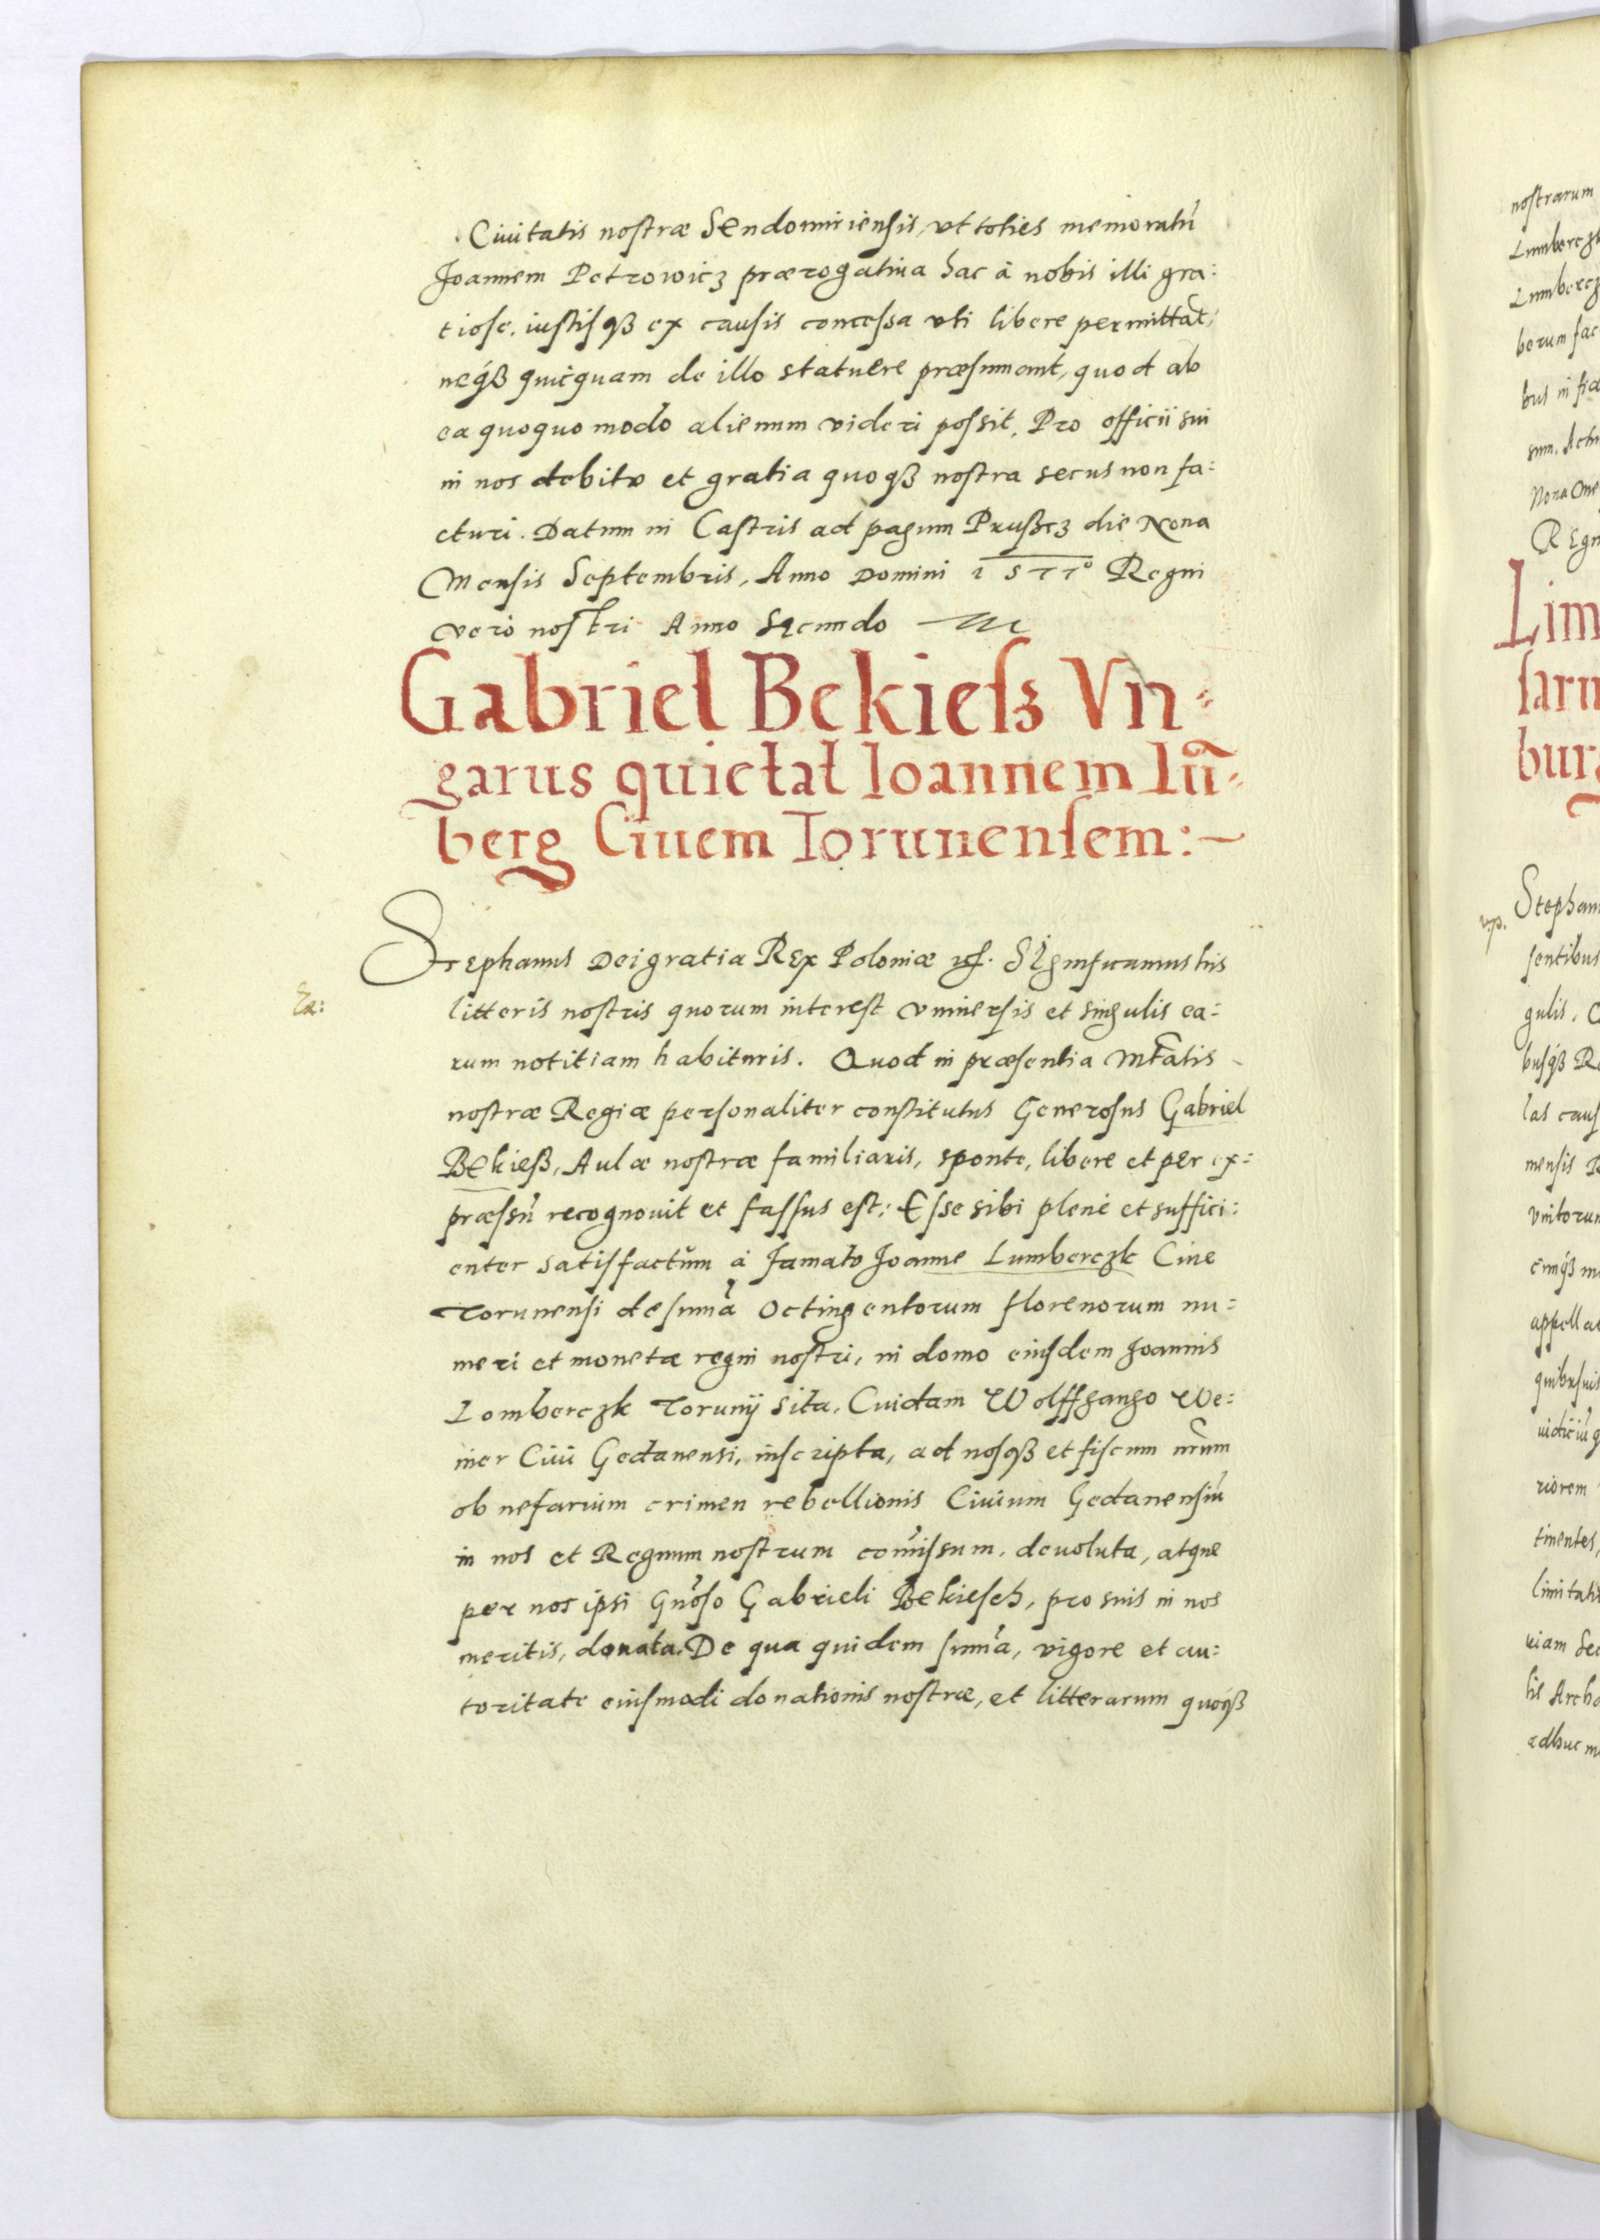 Ciuitatis nostræ Sendomiriensis, vt toties memoratū
Joannem Petrowicz prærogatiua hac à nobis illi gra:
tiose, iustisqȝ ex causis concessa vti libere permittāt,
neqȝ quicquam de illo statuere præsumant, quod ab
ea quoquo modo alienum videri possit. Pro officii sui
in nos debito et gratia quoqȝ nostra secus non fa:
cturi. Datum in Castris ad pagum Prussez die Nona
Mensis Septembris, Anno Domini 1577º Regni
vero nostri Anno Secundo
Gabriel Bekiesz Vn=
garus quietat Ioannem Lū=
berg Ciuem Torunensem:~
Stephanus Dei gratia Rex Poloniæ etc. Significamus his
Ex:
litteris nostris quorum interest vniuersis et singulis ea:
rum notitiam habituris. Quod in præsentia Mtatis
nostræ Regiæ personaliter constitutus Generosus Gabriel
Bekiesß, Aulæ nostræ familiaris, sponte, libere et per ex:
præssū recognouit et fassus est: Esse sibi plenè et suffici:
enter satisfactum à famato Joanne Lumberczk Ciue
Torunensi de sum̄a octingentorum florenorum nu:
meri et monetæ regni nostri, in domo eiusdem Joannis
Lomberczk Torunij sita, Cuidam Wolffgango We:
iner Ciui Gedanensi, inscripta, ad nosqȝ et fiscum nr̄um
ob nefarium crimen rebellionis Ciuium Gedanensiū
in nos et Regnum nostrum com̄issum, deuoluta, atque
per nos ipsi Gnōso Gabrieli Bekiesch, pro suis in nos
meritis, donata. De qua quidem sum̄a, vigore et au:
toritate eiusmodi donationis nostræ, et litterarum quoqȝ
nostrarum
Lumberczk
bus in
Nona
Regn
Lim
sarn
burg
Stephan
sentibus
gulis.
las caus
mensis
riorem
tinentes,
adhuc